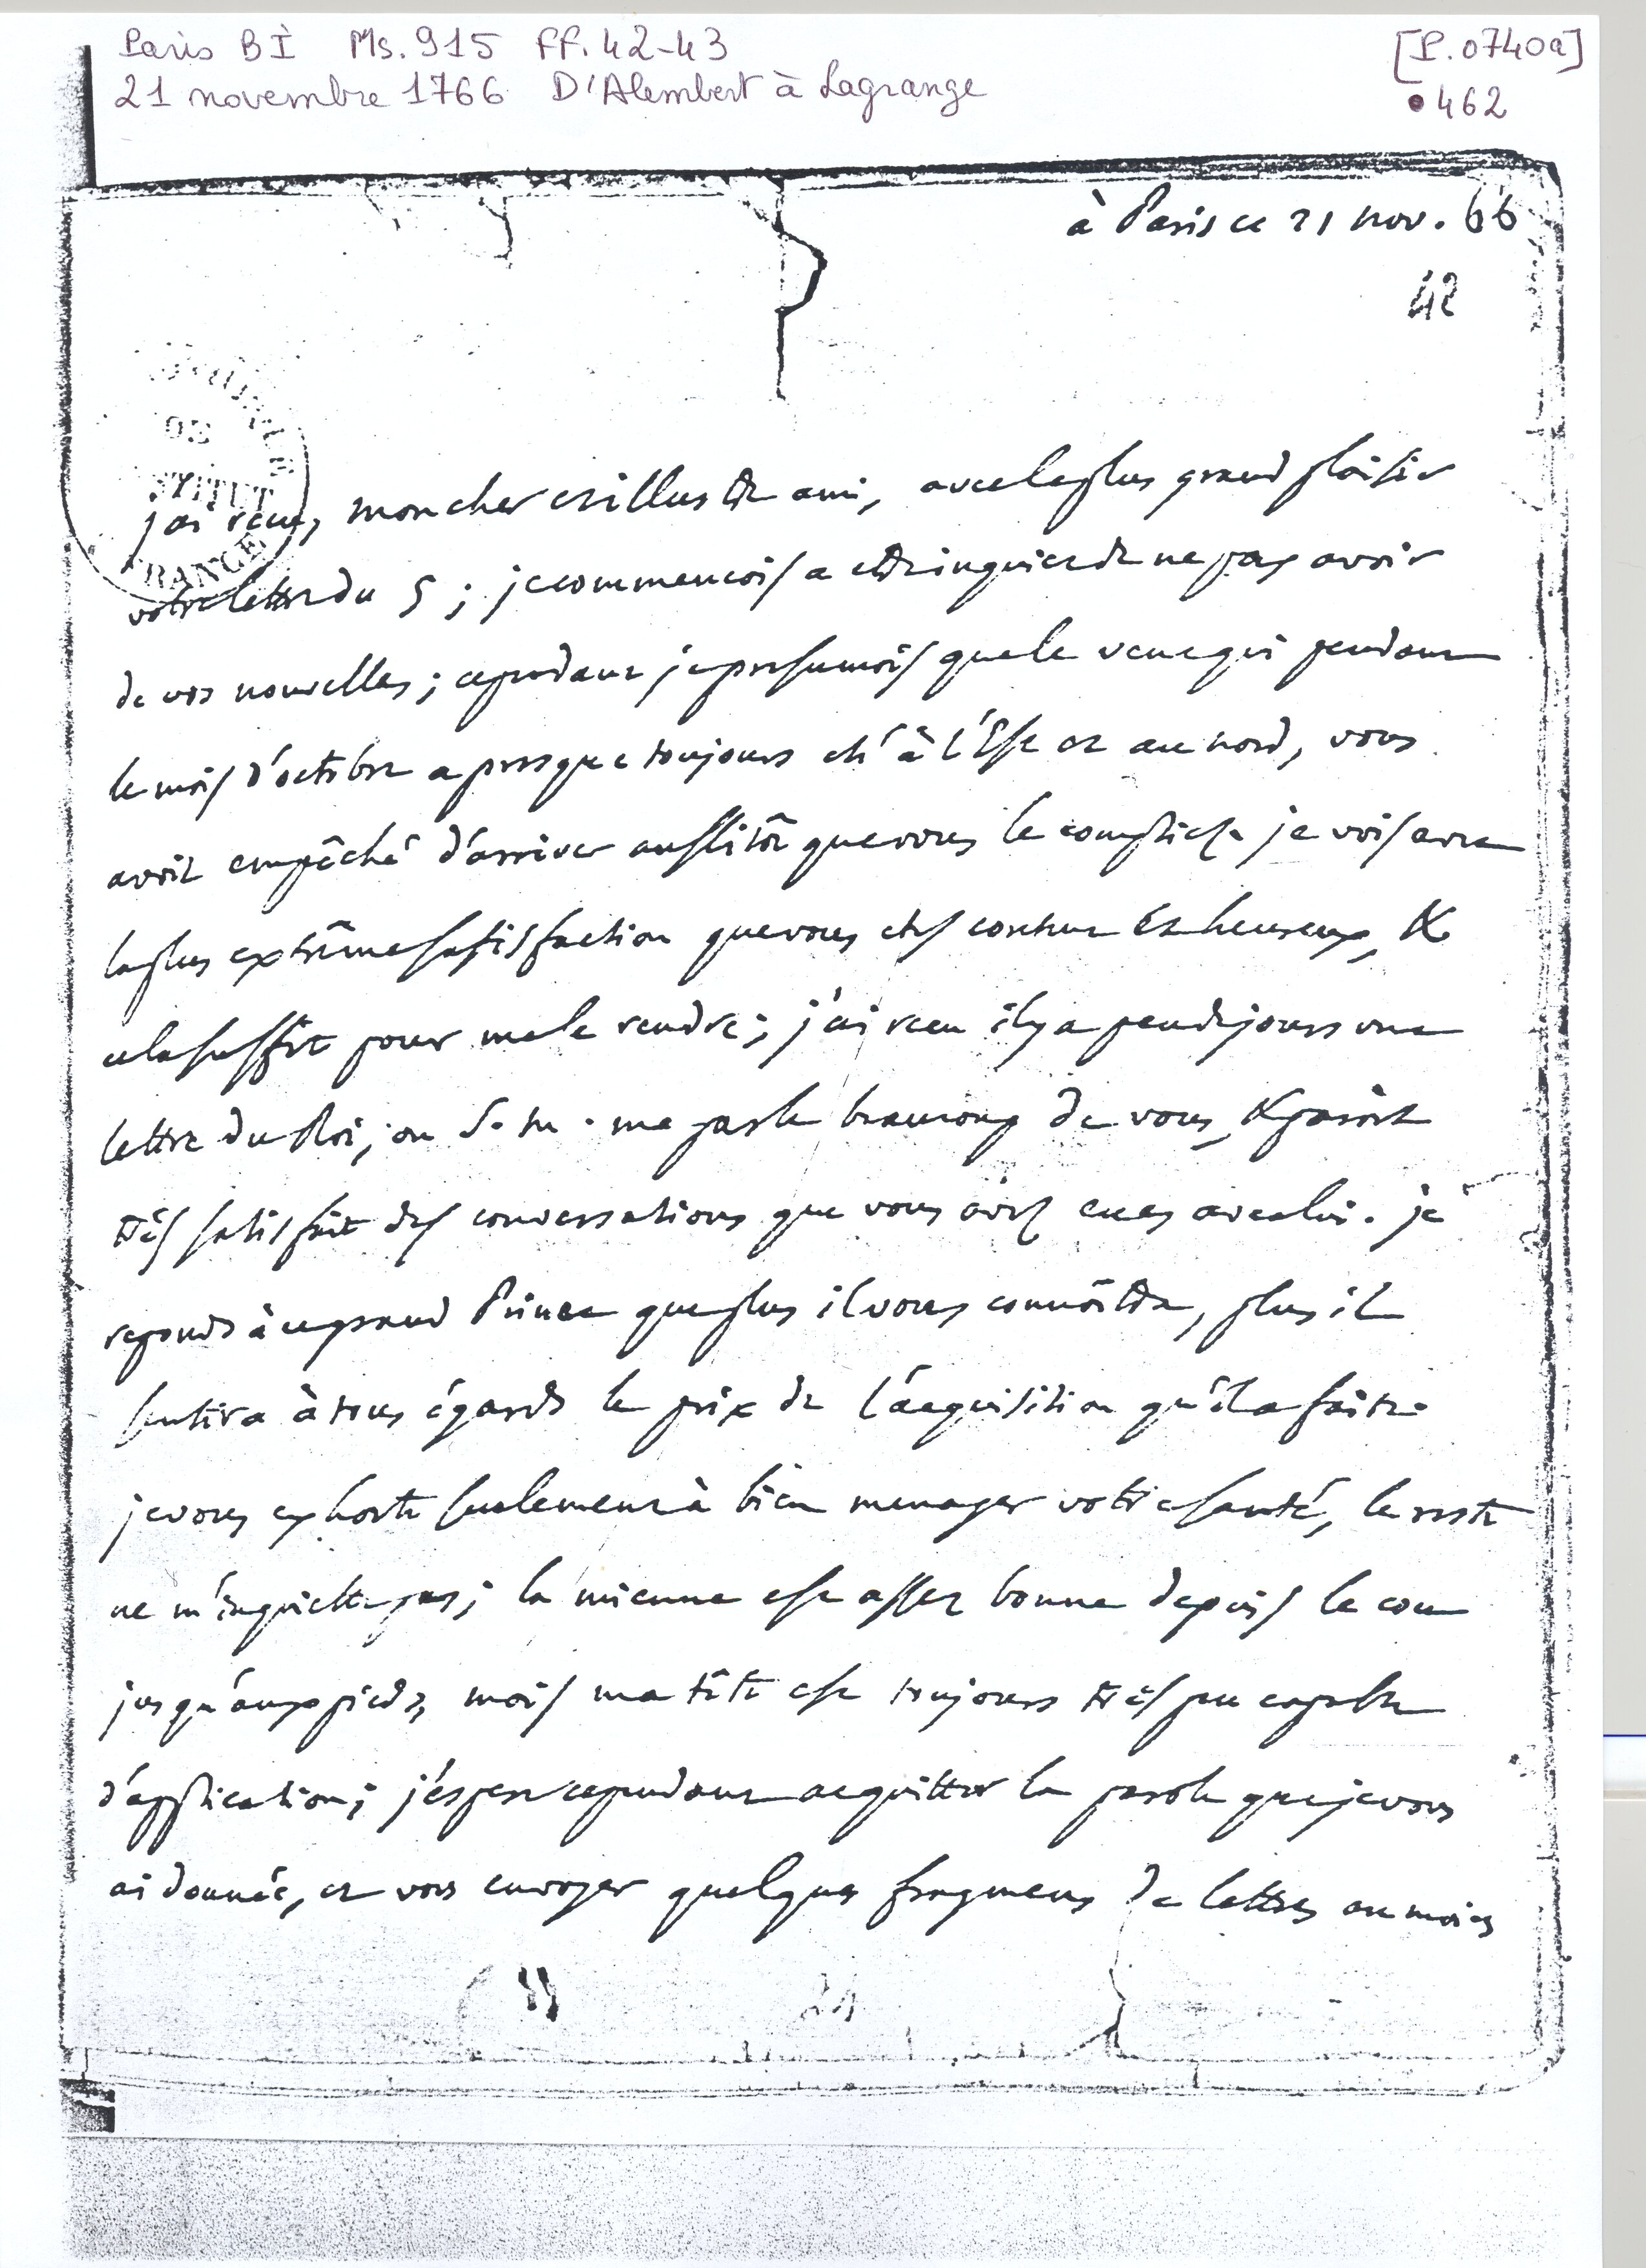 Paris BI Ms. 915 ff. 42-43
[P. 0740a]
21 novembre 1766 D'Alembert à Lagrange
• 462
à Paris ce 21 nov. 66
42
DE
FRANCE
j'ai reçu, mon cher et illustre ami, avec le plus grand plaisir
votre lettre du 5 ; je commençois a etre inquiet de ne pas avoir
de vos nouvelles ; cependant je presumois que le vent qui pendant
le mois d'octobre a presque toujours eté à l'Est et au nord, vous
avoit empêché d'arriver aussitôt que vous le comptiez. je vois avec
la plus extrême satisfaction que vous etes content et heureux, &
cela suffit pour me le rendre ; j'ai reçu il y a peu de jours une
lettre du Roi, ou S. M. me parle beaucoup de vous, & paroit
très satisfait des conversations que vous avez eues avec lui. je
reponds à ce grand Prince que plus il vous connoîtra, plus il
sentira à tous égards le prix de l'acquisition qu'il a faite.
je vous exhorte seulement à bien menager votre santé, le reste
ne m'inquiette pas ; la mienne est assez bonne depuis le cou
jusqu'aux pieds, mais ma tête est toujours très peu capable
d'application ; j'espere cependant acquitter la parole que je vous
ai donnée, et vous envoyer quelques fragmens de lettres au moins